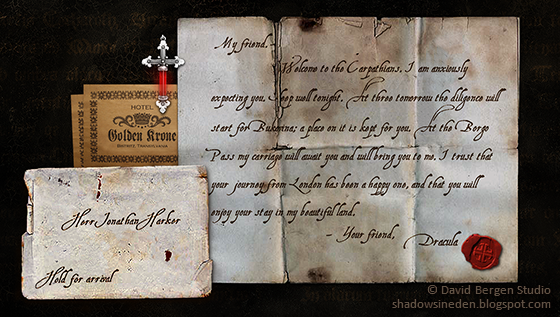 My friend. -
Welcome to the Carpathians. I am anxiously
expecting you. Sleep well tonight. At three tomorrow the diligence will
start for Bukovina; a place on it is kept for you. At the Borgo
Pass my carriage will await you and will bring you to me. I trust that
your journey from London has been a happy one, and that you will
enjoy your stay in my beautiful land.
- Your friend,
Dracula
HOTEL
Golden Krone
BISTRITZ, TRANSYLVANIA
Herr Jonathan Harker
Hold for arrival
© David Bergen Studio
shadowsineden.blogspot.com